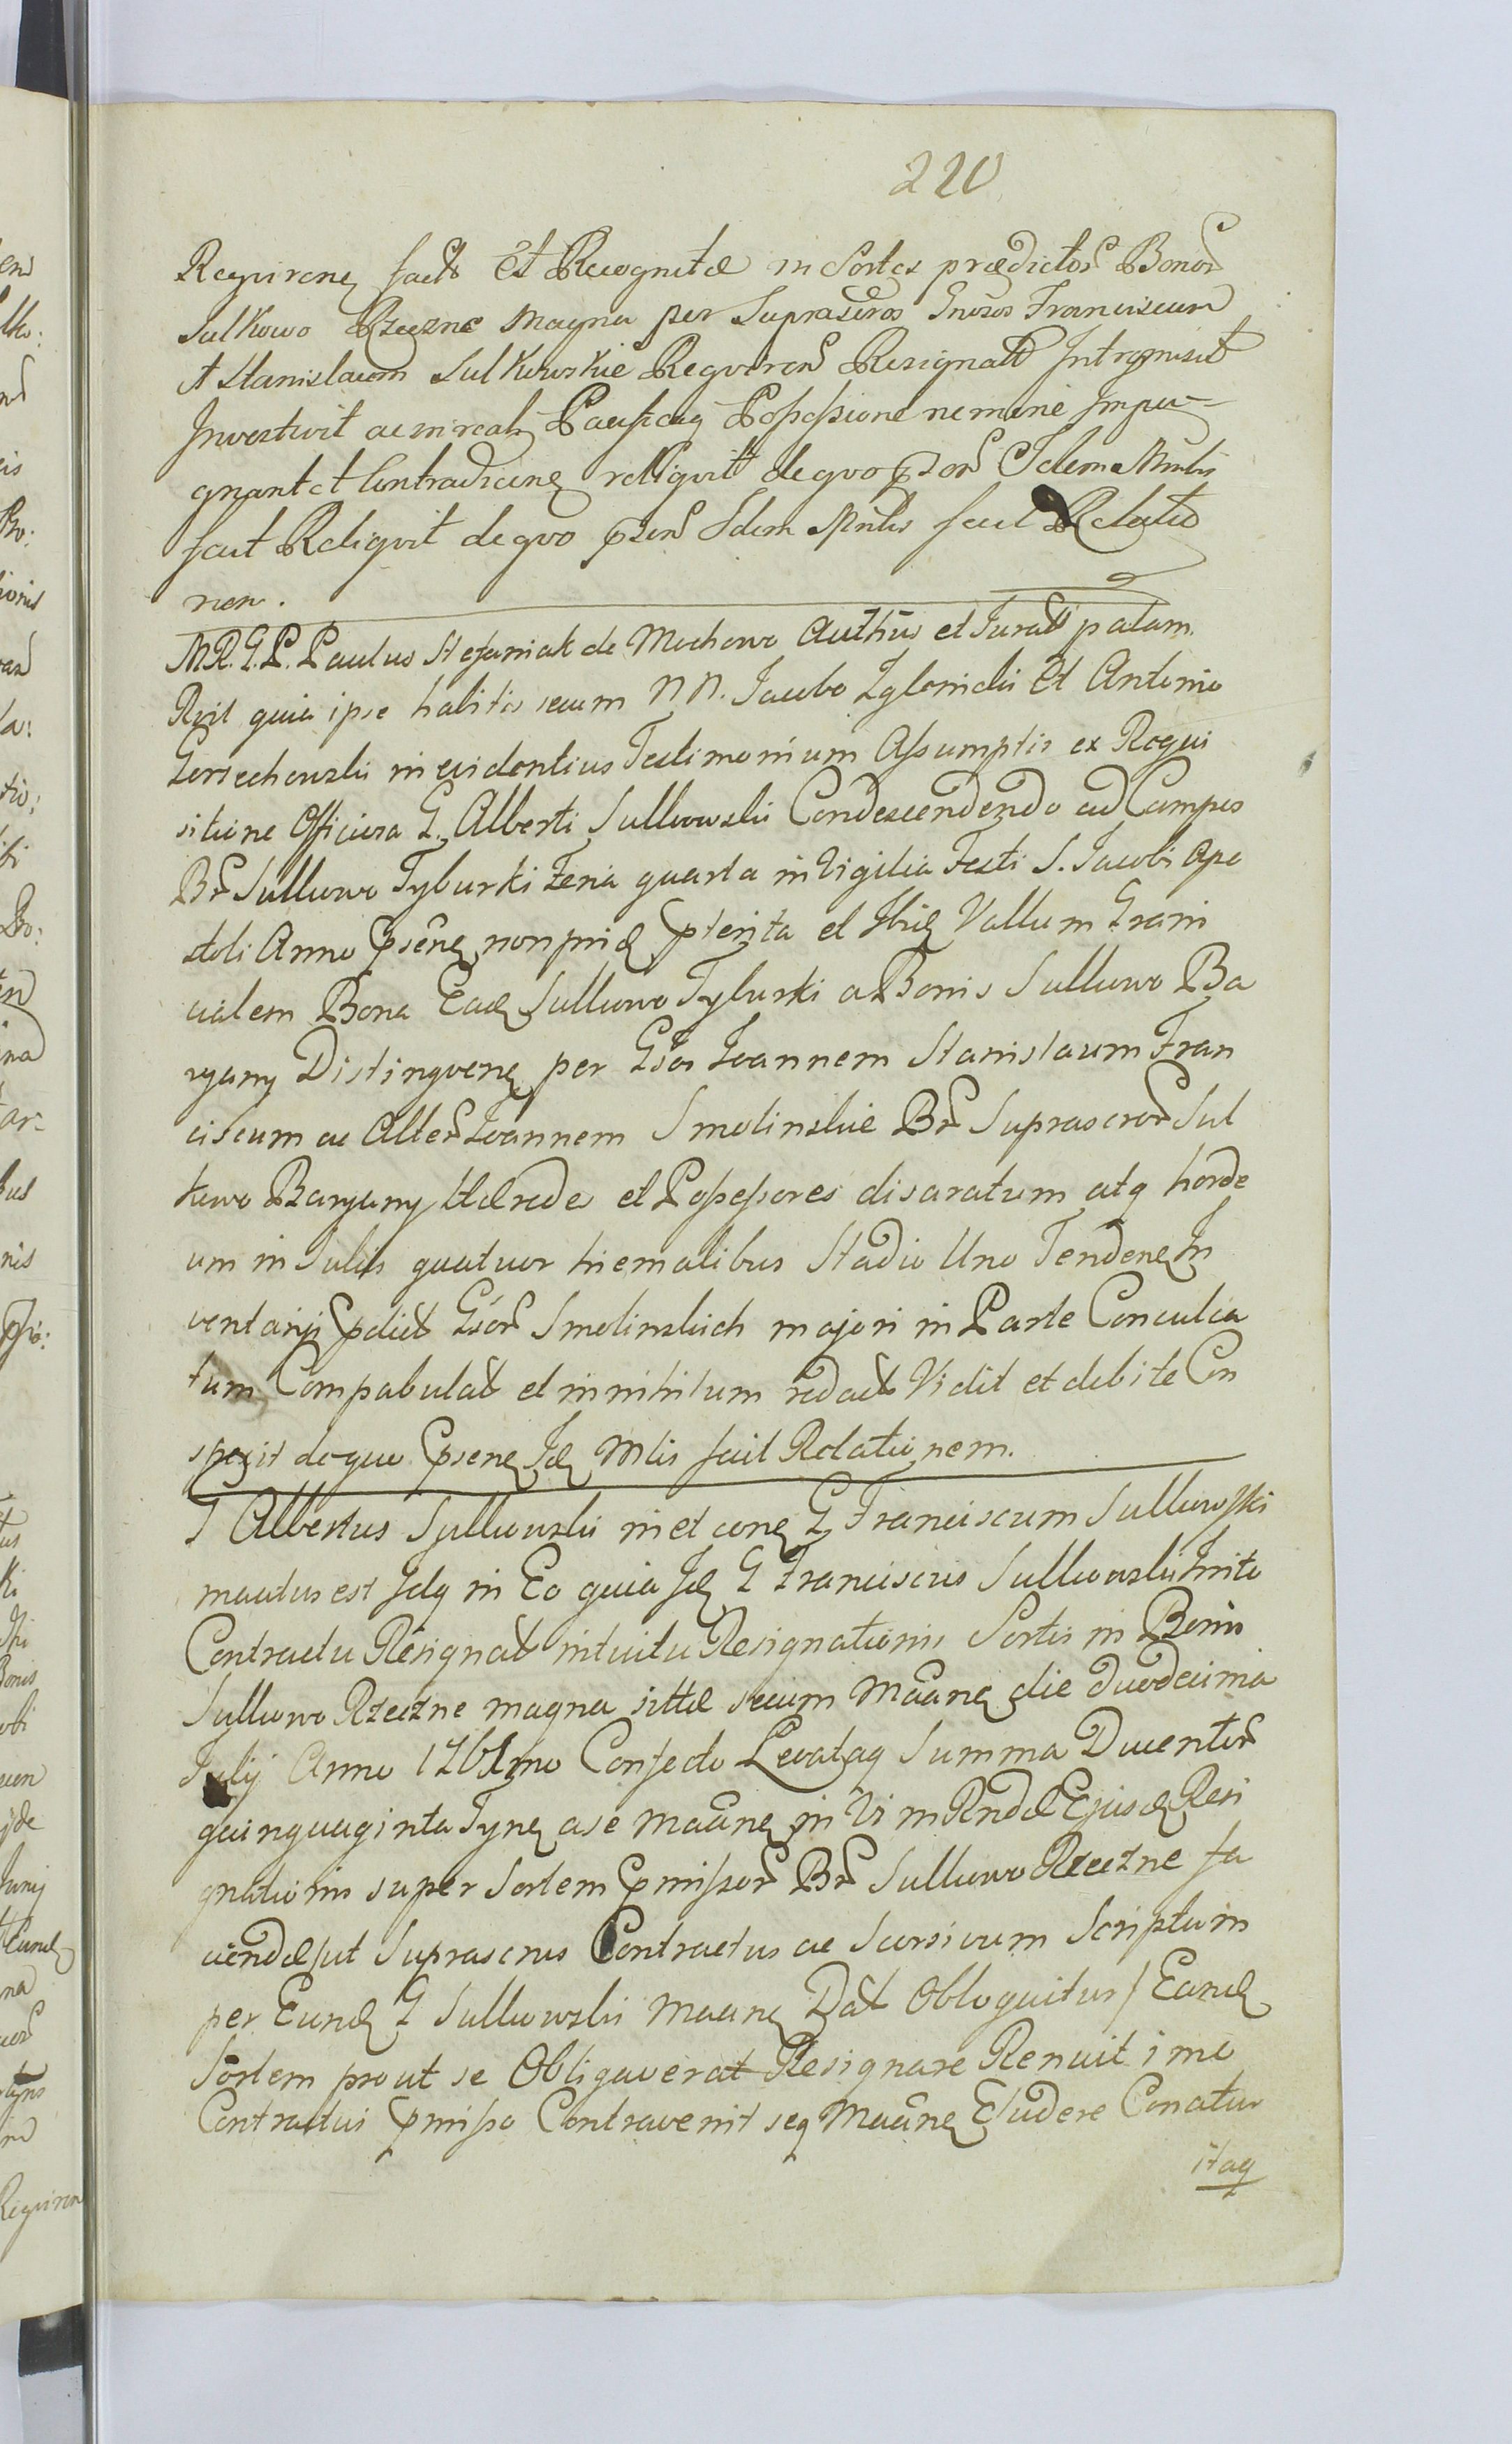 220
Requirenȩ facta Et Recognitæ in Sortes prædictor Bonor
Sulkowo Rzeczne Magna per Suprascros Gnosos Franciscum
et Stanislaum Sulkowskie Requiren Resignat Intromisit
Investivit ac in realȩ Pacificaq Possessione nemine Impu-
gnant et Contradicenȩ relliquit de quo pzens Idem Mnlis
fecit Reliquit de quo pzens Idem Mnlis fecit Relatio
nem.
M.R.G.P. Paulus Stefaniak de Mochowo Authus et Jurat palam
Rvit quia ipse habitis secum N N. Jacobo Zglenicki Et Antonio
Gorzechowski in evidentius Testimonium Assumptis ex Requi
sitione Officiosa G. Alberti Sulkowski Condescendendo ad Campos
Br Sulkowo Tyburki Feria quarta in Vigilia Festi S. Jacobi Apo
stoli Anno psenȩ nonprid pterita et Ibid Vallum Grani
cialem Bona Ead Sulkowo Tyburki a Bonis Sulkowo Ba
ryany Distinguenȩ per Gsos Joannem Stanislaum Fran
ciscum ac Alter Joannem Smolinskie Br Suprascror Sul
kowo Baryany Hærede et Possessores disaratum atq horde
um in Sulis quatuor hiemalibus Stadio Uno Tendenȩ In
ventarijs pdict Gsor Smolinskich majori in Parte Conculca
tum Compabulat et in nihilum redact Vidit et debite Con
spexit de quo psenȩ Id Mlis fecit Relationem.
G Albertus Sulkowski in et conȩ G Franciscum Sulkowski
mautus est Idq in Eo quia Id G Franciscus Sulkowski Inito
Contractu Resignat intuitu Resignationis Sortis in Bonis
Sulkowo Rzeczne magna sittæ secum Maanȩ die duodecima
Julij Anno 1761mo Confecto Levataq Summa Ducentor
quinquaginta Tynȩ a se Maanȩ in Vim Rndæ Ejusd Resi
gnationis super Sortem pmissor Br Sulkowo Rzeczne fa
ciendæ sut Suprascrus Contractus ac Seorsivum Scriptum
per Eund G Sulkowski Maanȩ Dat Obloquitur / Eand
Sortem prout se Obligaverat Resignare Renuit imo
Contractui pmisso Contravenit seq Maanȩ Eludere Conatur
itaq